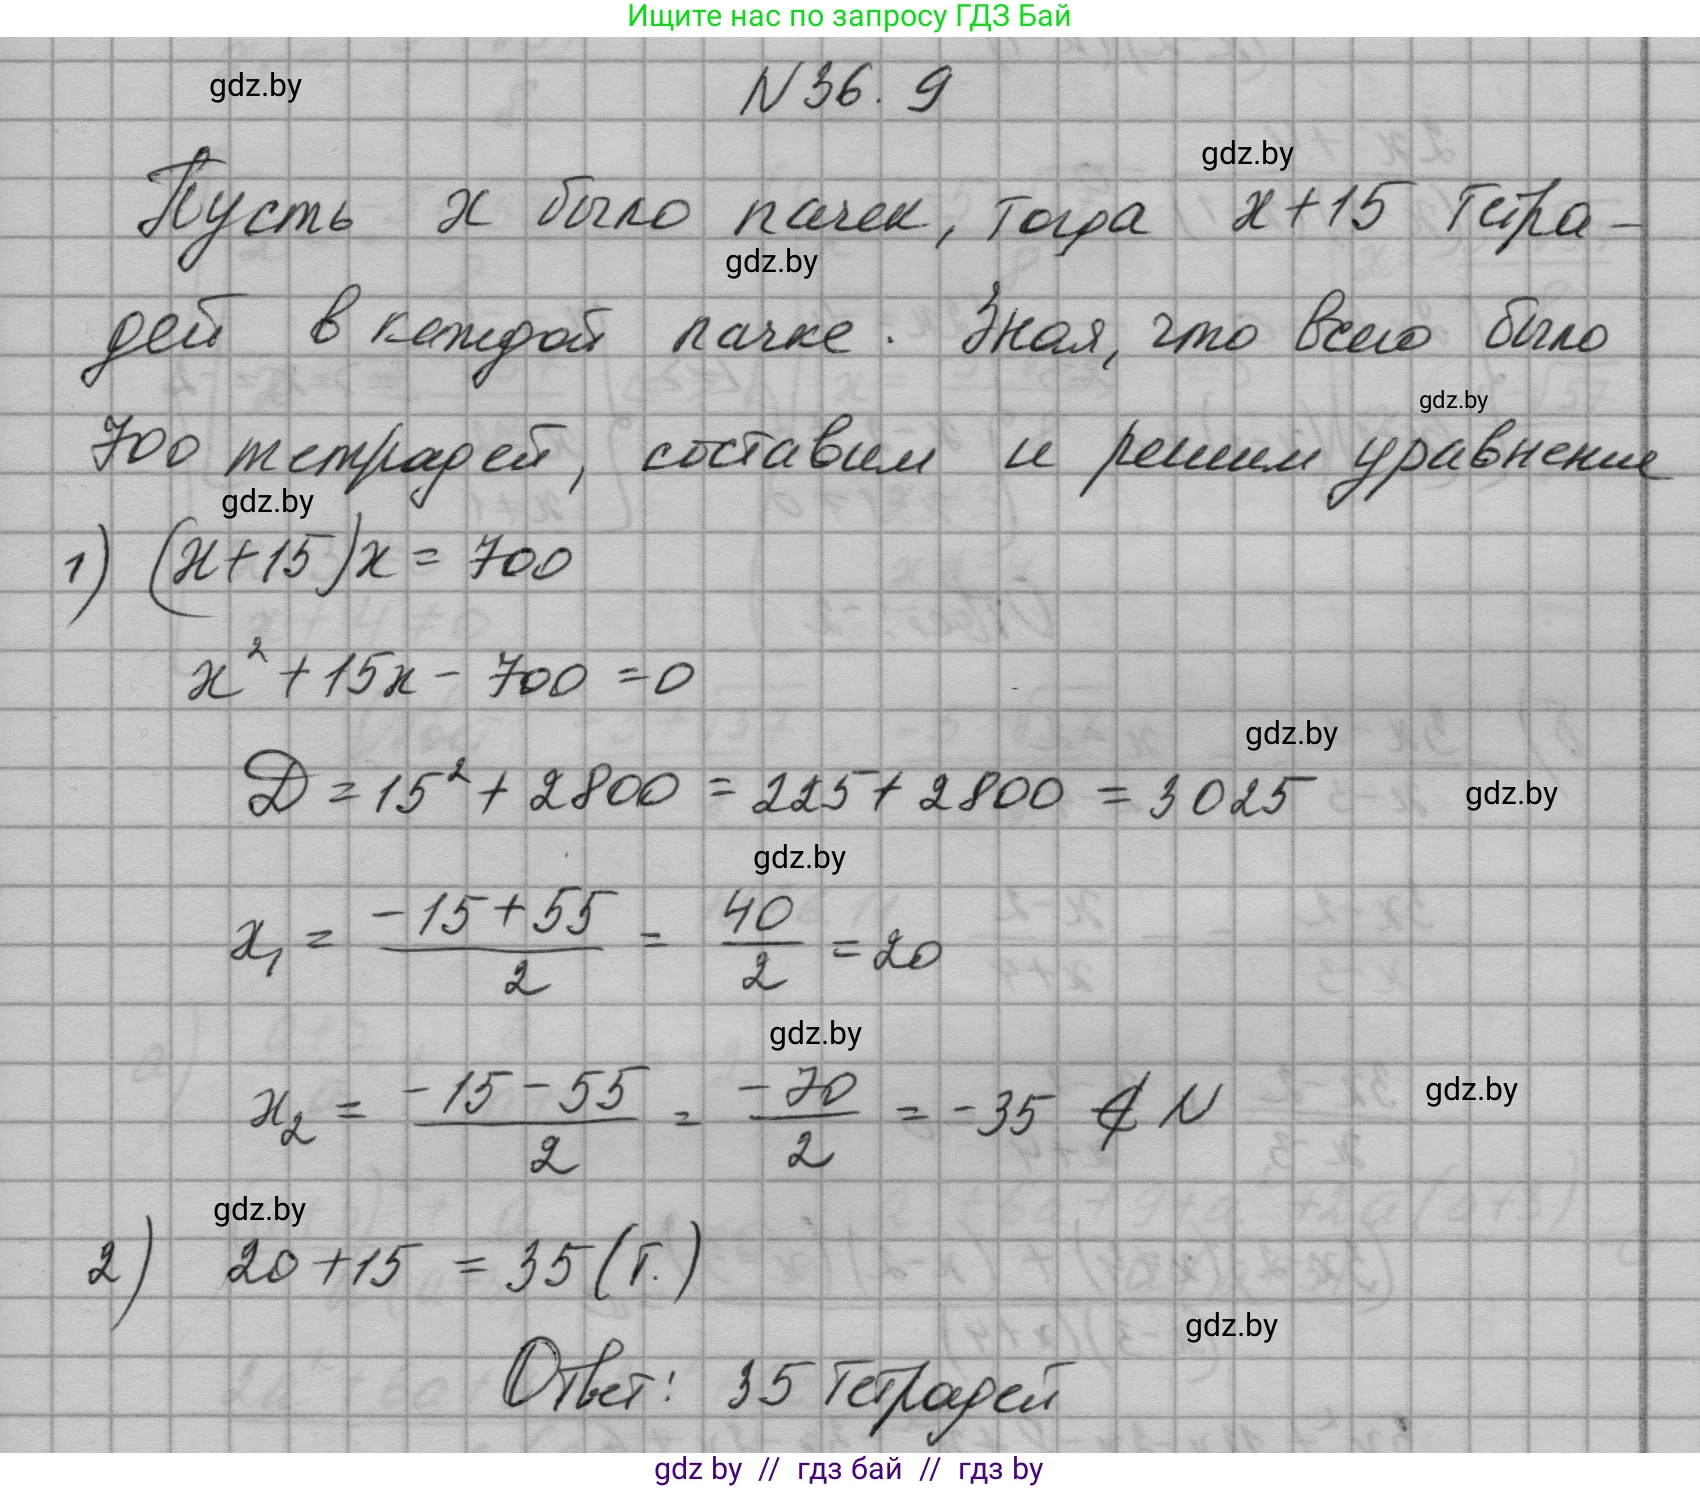 Ищите нас по запросу ГДЗ Бай
gdz.by
N 36. 9
gdz.by
Пусть x было пачек, тогда x+15 тетра-
gdz.by
дей в каждой пачке. Зная, что всего было
gdz.by
700 тетрадей, составим и решим уравнение
gdz.by
1) (x+15)x = 700
x² + 15x - 700 = 0
gdz.by
D = 15² + 2800 = 225 + 2800 = 3025
gdz.by
gdz.by
x₁ = (-15+55)/2 = 40/2 = 20
gdz.by
x₂ = (-15-55)/2 = -70/2 = -35 ∉ N
gdz.by
gdz.by
2) 20+15 = 35 (т.)
gdz.by
Ответ: 35 тетрадей
gdz by // гдз бай // гдз by